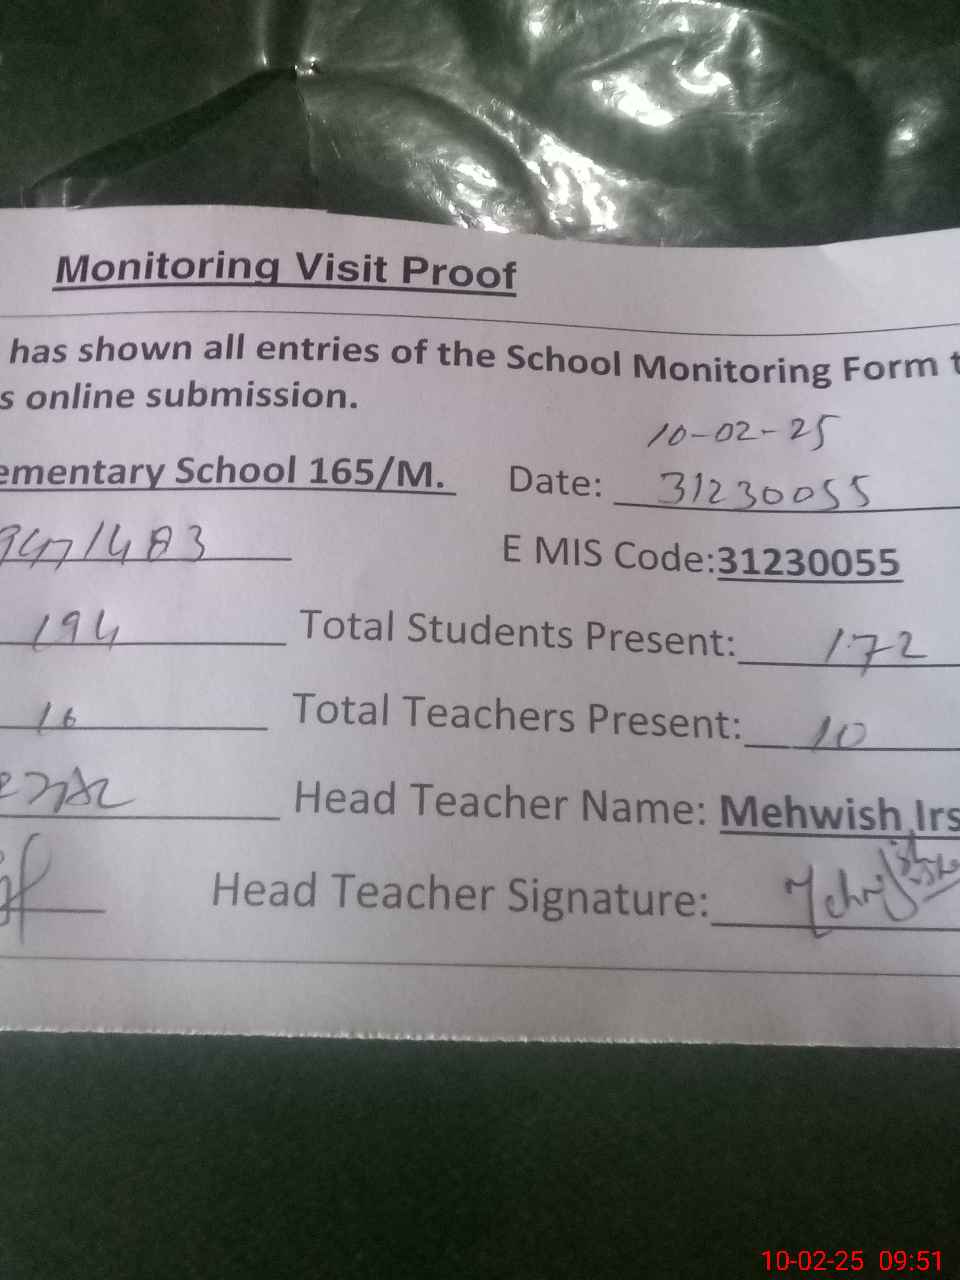 Monitoring Visit Proof
has shown all entries of the School Monitoring Form t
s online submission.
10-02-25
ementary School 165/M. Date: 31230055
947/483 E MIS Code:31230055
194 Total Students Present: 172
16 Total Teachers Present: 10
Head Teacher Name: Mehwish Irs
Head Teacher Signature:
10-02-25 09:51